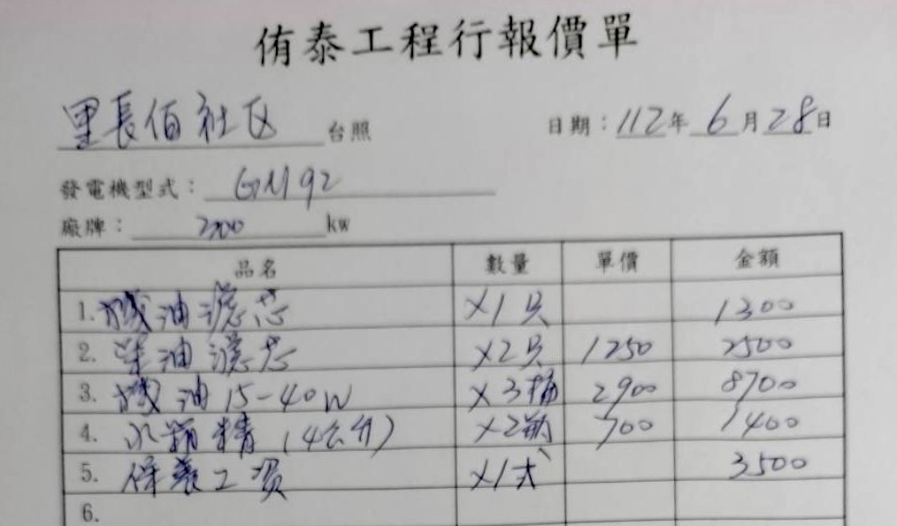 侑泰工程行報價單
里長伯社区 台照 日期：112年 6月28日
發電機型式：GM92
廠牌：200 kw
品名 數量 單價 金額
1. 機油濾芯 ×1只 1300
2. 柴油濾芯 ×2只 1250 2500
3. 機油15-40W ×3桶 2900 8700
4. 水箱精(4公升) ×2瓶 700 1400
5. 保養工资 ×1式 3500
6.